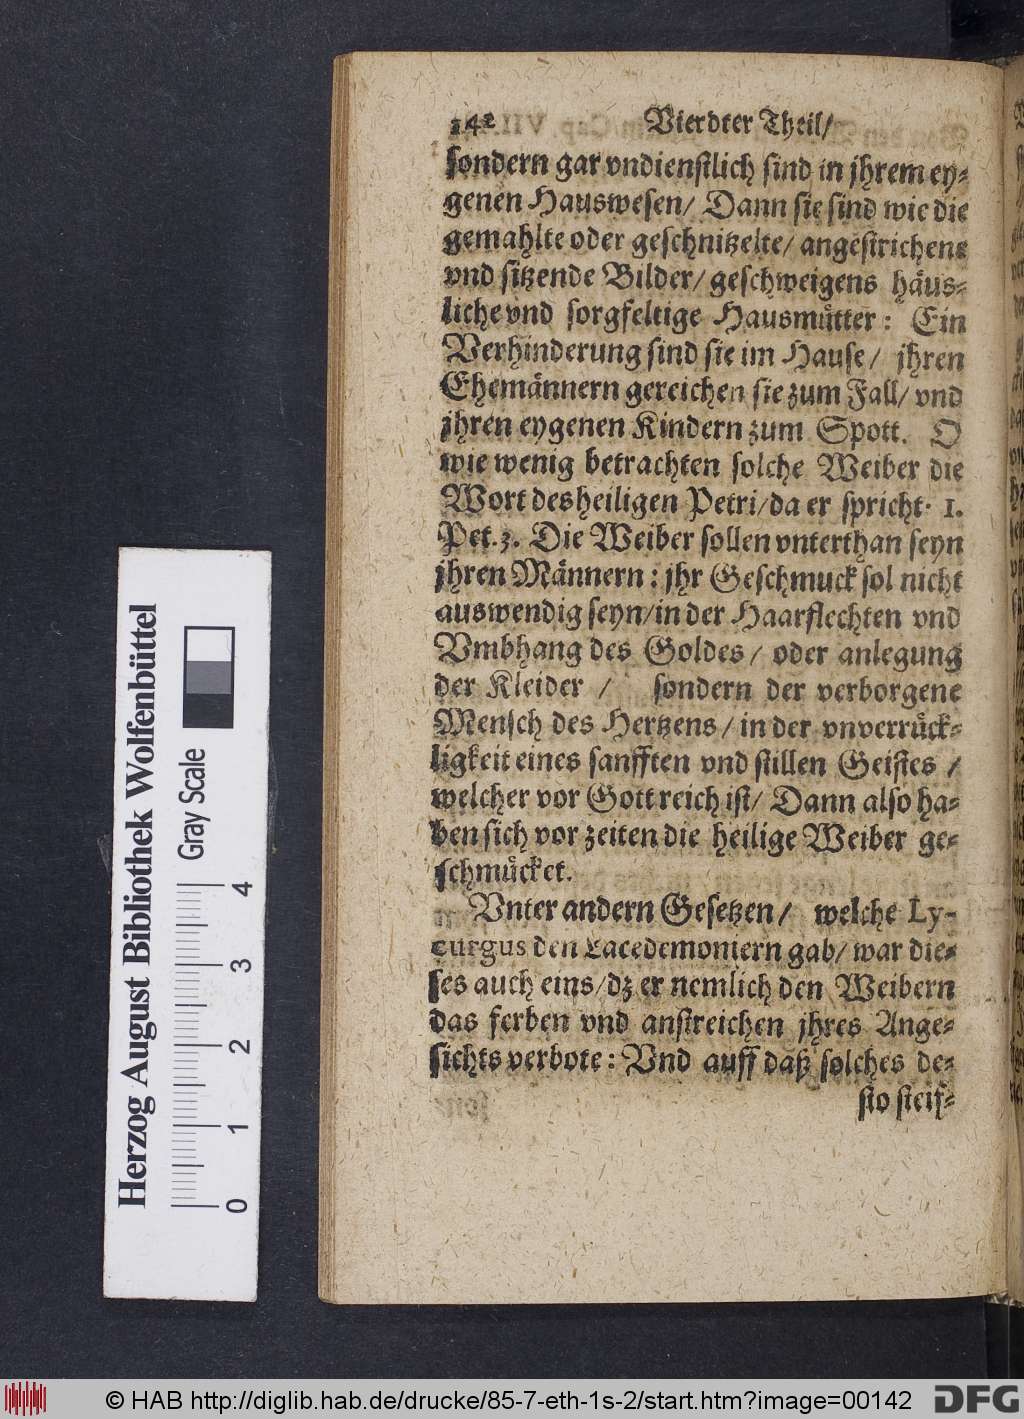 142 Vierdter Theil/
sondern gar vndienstlich sind in jhrem ey-
genen Hauswesen/ Dann sie sind wie die
gemahlte oder geschnitzelte/ angestrichene
vnd sitzende Bilder/ geschweigens häus-
liche vnd sorgfeltige Hausmütter: Ein
Verhinderung sind sie im Hause/ jhren
Ehemännern gereichen sie zum Fall/ vnd
jhren eygenen Kindern zum Spott. O
wie wenig betrachten solche Weiber die
Wort des heiligen Petri/ da er spricht. 1.
Pet. 3. Die Weiber sollen vnterthan seyn
jhren Männern: jhr Geschmuck sol nicht
auswendig seyn/ in der Haarflechten vnd
Vmbhang des Goldes/ oder anlegung
der Kleider / sondern der verborgene
Mensch des Hertzens/ in der vnverrück-
ligkeit eines sanfften vnd stillen Geistes /
welcher vor Gott reich ist/ Dann also ha-
ben sich vor zeiten die heilige Weiber ge-
schmücket.
Vnter andern Gesetzen/ welche Ly-
curgus den Lacedemoniern gab/ war die-
ses auch eins/ dz er nemlich den Weibern
das ferben vnd anstreichen jhres Ange-
sichts verbote: Vnd auff daß solches de-
sto steif-
Herzog August Bibliothek Wolfenbüttel
Gray Scale
0 1 2 3 4
© HAB http://diglib.hab.de/drucke/85-7-eth-1s-2/start.htm?image=00142
DFG